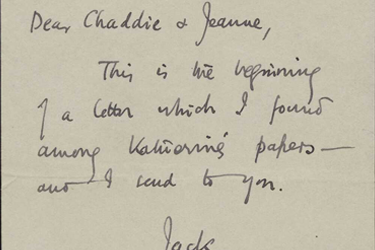 Dear Chaddie & Jeanne,
This is the beginning
of a letter which I found
among Katherine's papers —
and I send to you.
Jack